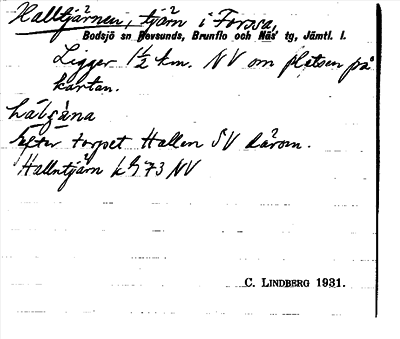 Halltjärnen, tjärn i Forssa,
Bodsjö sn Revsunds, Brunflo och Näs tg, Jämtl. l.
Ligger 1½ km. NV om platsen på
kartan.
Låtgåna
Efter torpet Hallen SV därom.
Hallntjärn 73 NV
C. LINDBERG 1931.